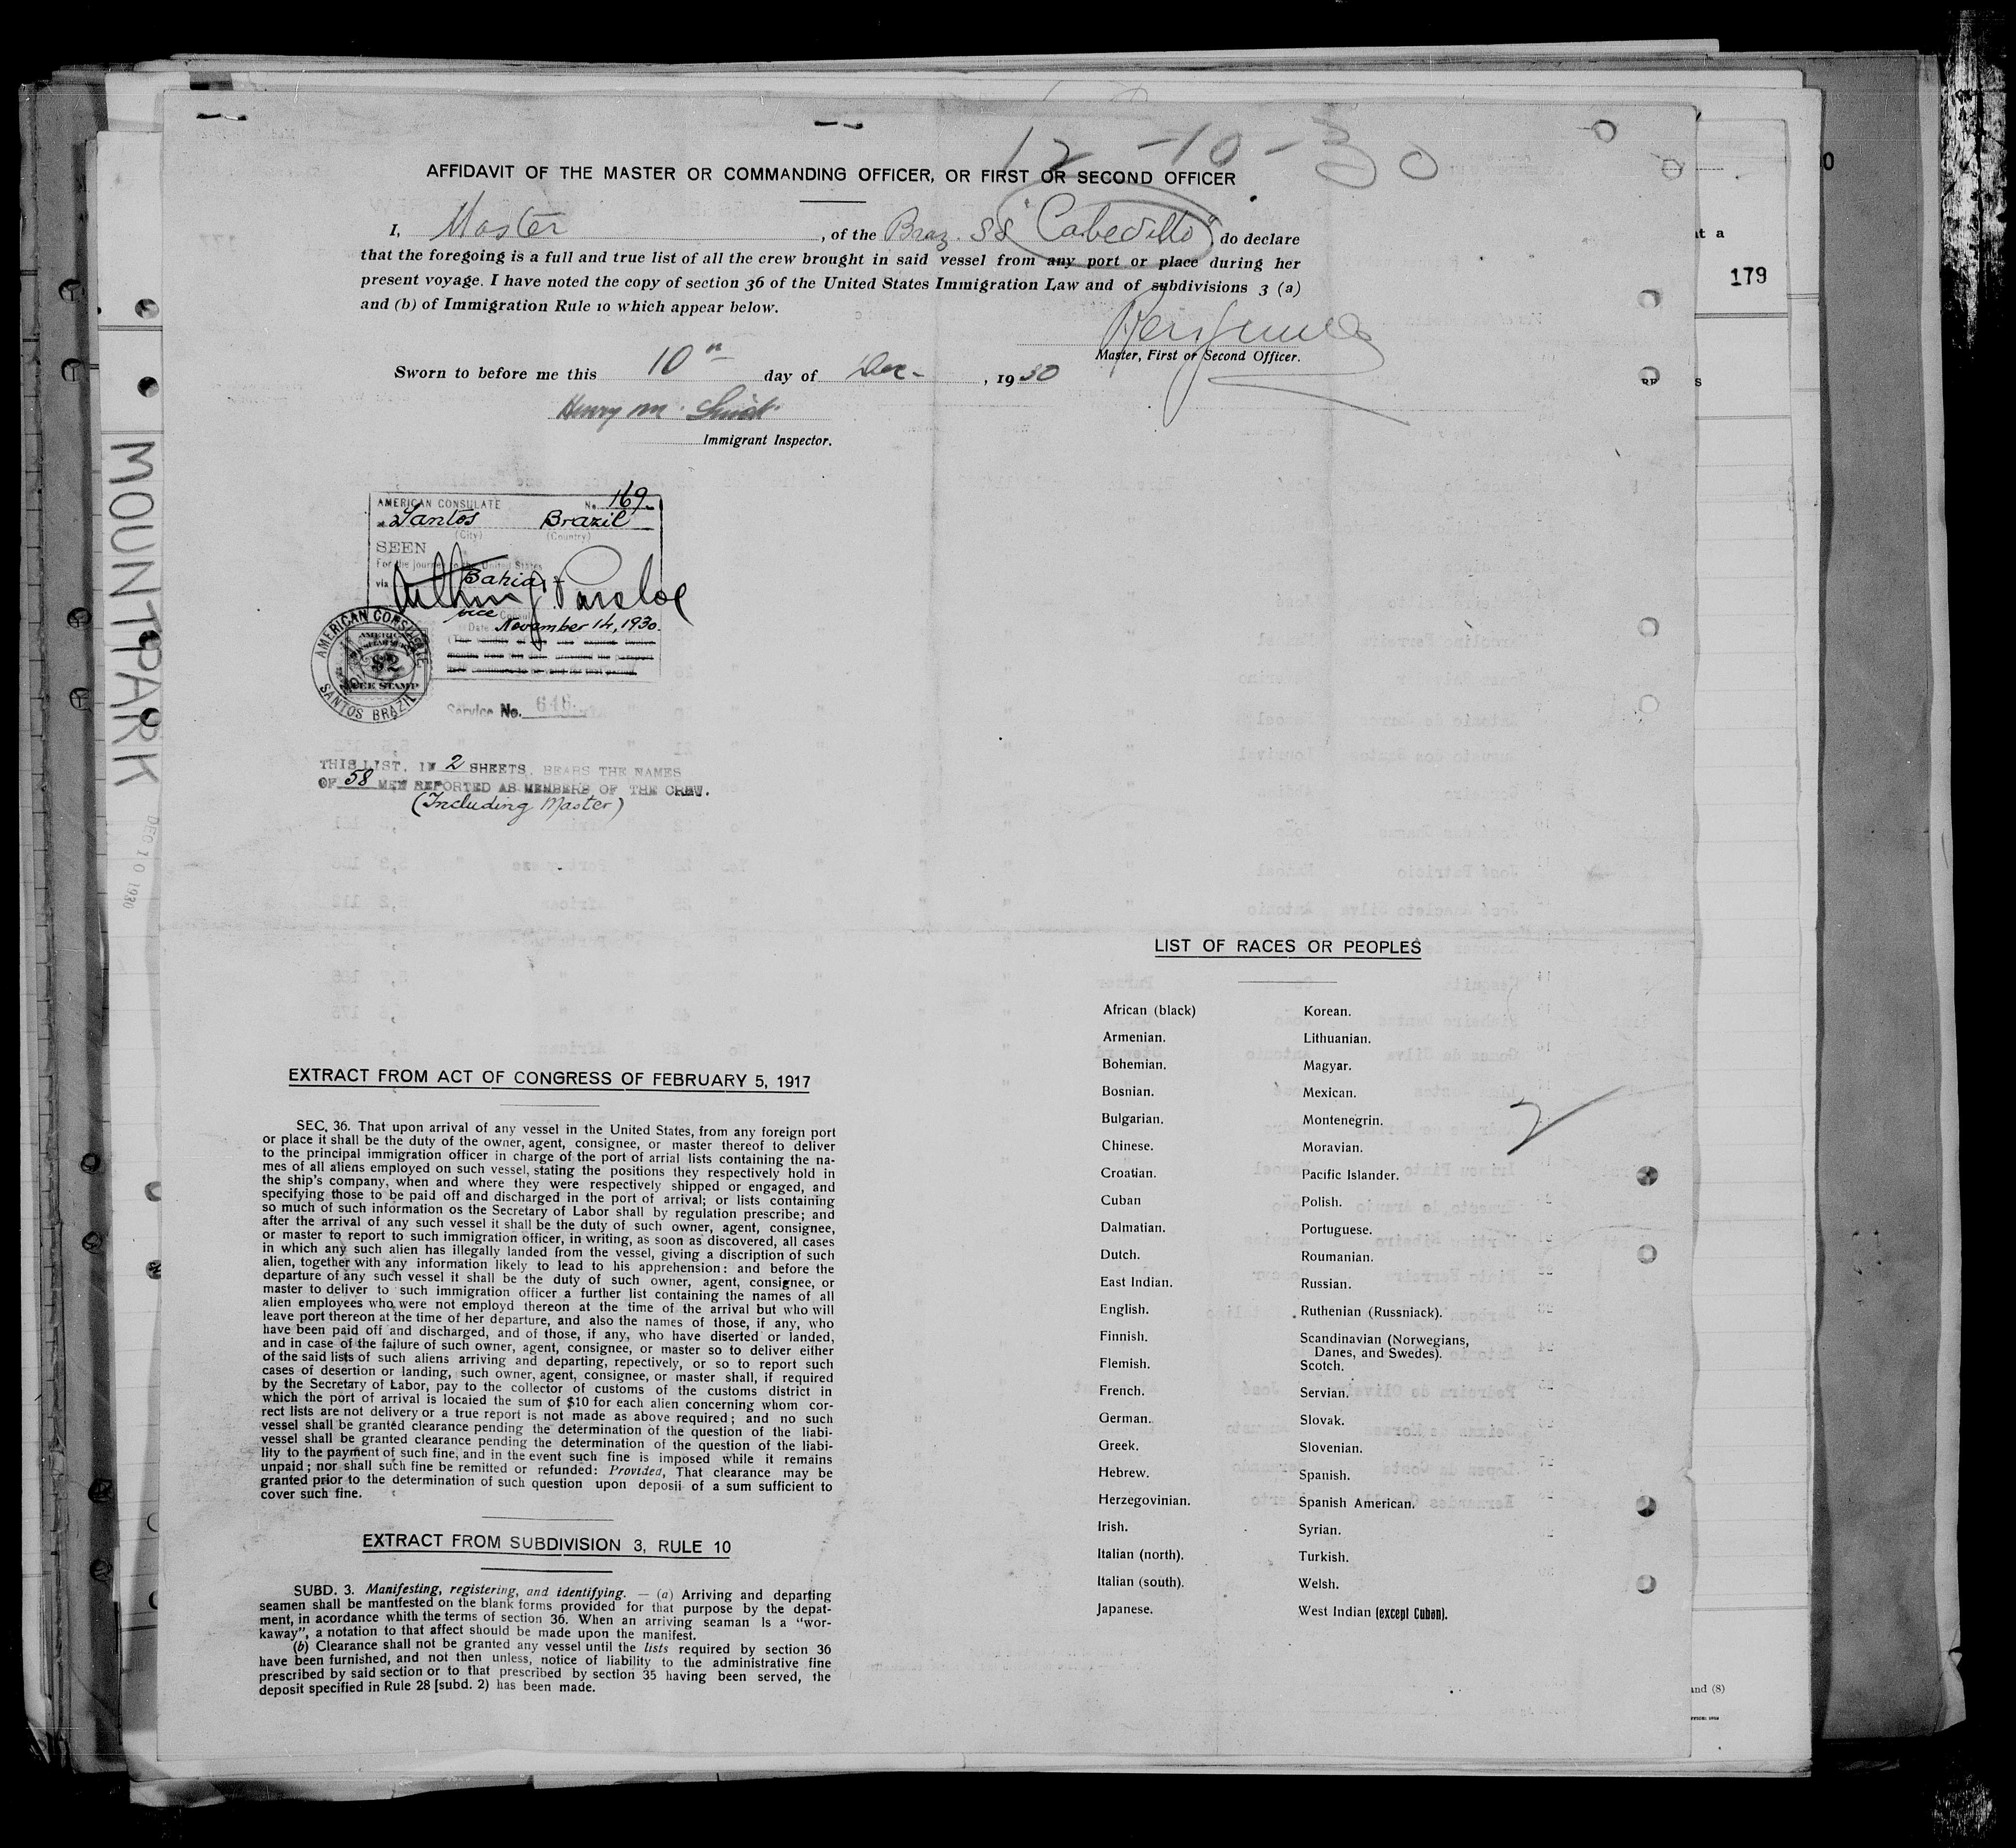 12-10-30
AFFIDAVIT OF THE MASTER OR COMMANDING OFFICER, OR FIRST OR SECOND OFFICER
I, Master, of the Braz. SS "Cabedello" do declare
that the foregoing is a full and true list of all the crew brought in said vessel from any port or place during her
present voyage. I have noted the copy of section 36 of the United States Immigration Law and of subdivisions 3 (a)
and (b) of Immigration Rule 10 which appear below.
Master, First or Second Officer.
Sworn to before me this 10th day of Dec-, 1930
Henry M.
Immigrant Inspector.
AMERICAN CONSULATE No. 169
at Santos Brazil
(City) (Country)
SEEN
For the journey to the United States
via Bahia
Arthur
vice Consul
Date November 14, 1930.
AMERICAN CONSULATE
SANTOS BRAZIL
$2
FEE STAMP
Service No. 646
THIS LIST, IN 2 SHEETS, BEARS THE NAMES
OF 58 MEN REPORTED AS MEMBERS OF THE CREW.
(Including Master)
EXTRACT FROM ACT OF CONGRESS OF FEBRUARY 5, 1917
SEC. 36. That upon arrival of any vessel in the United States, from any foreign port
or place it shall be the duty of the owner, agent, consignee, or master thereof to deliver
to the principal immigration officer in charge of the port of arrial lists containing the na-
mes of all aliens employed on such vessel, stating the positions they respectively hold in
the ship's company, when and where they were respectively shipped or engaged, and
specifying those to be paid off and discharged in the port of arrival; or lists containing
so much of such information os the Secretary of Labor shall by regulation prescribe; and
after the arrival of any such vessel it shall be the duty of such owner, agent, consignee,
or master to report to such immigration officer, in writing, as soon as discovered, all cases
in which any such alien has illegally landed from the vessel, giving a discription of such
alien, together with any information likely to lead to his apprehension: and before the
departure of any such vessel it shall be the duty of such owner, agent, consignee, or
master to deliver to such immigration officer a further list containing the names of all
alien employees who were not employd thereon at the time of the arrival but who will
leave port thereon at the time of her departure, and also the names of those, if any, who
have been paid off and discharged, and of those, if any, who have diserted or landed,
and in case of the failure of such owner, agent, consignee, or master so to deliver either
of the said lists of such aliens arriving and departing, repectively, or so to report such
cases of desertion or landing, such owner, agent, consignee, or master shall, if required
by the Secretary of Labor, pay to the collector of customs of the customs district in
which the port of arrival is locaied the sum of $10 for each alien concerning whom cor-
rect lists are not delivery or a true report is not made as above required; and no such
vessel shall be granted clearance pending the determination of the question of the liabi-
vessel shall be granted clearance pending the determination of the question of the liabi-
lity to the payment of such fine, and in the event such fine is imposed while it remains
unpaid; nor shall such fine be remitted or refunded: Provided, That clearance may be
granted prior to the determination of such question upon deposii of a sum sufficient to
cover such fine.
EXTRACT FROM SUBDIVISION 3, RULE 10
SUBD. 3. Manifesting, registering, and identifying. — (a) Arriving and departing
seamen shall be mantfested on the blank forms provided for that purpose by the depat-
ment, in acordance whith the terms of section 36. When an arriving seaman Is a "wor-
kaway", a notation to that affect should be made upon the manifest.
(b) Clearance shall not be granted any vessel until the lists required by section 36
have been furnished, and not then unless, notice of liability to the administrative fine
prescribed by said section or to that prescribed by section 35 having been served, the
deposit specified in Rule 28 [subd. 2) has been made.
LIST OF RACES OR PEOPLES
African (black)
Armenian.
Bohemian.
Bosnian.
Bulgarian.
Chinese.
Croatian.
Cuban
Dalmatian.
Dutch.
East Indian.
English.
Finnish.
Flemish.
French.
German.
Greek.
Hebrew.
Herzegovinian.
Irish.
Italian (north).
Italian (south).
Japanese.
Korean.
Lithuanian.
Magyar.
Mexican.
Montenegrin.
Moravian.
Pacific Islander.
Polish.
Portuguese.
Roumanian.
Russian.
Ruthenian (Russniack).
Scandinavian (Norwegians,
Danes, and Swedes).
Scotch.
Servian.
Slovak.
Slovenian.
Spanish.
Spanish American.
Syrian.
Turkish.
Welsh.
West Indian (except Cuban).
2
MOUNTPARK
DEC 10 1930
at a
179
and (8)